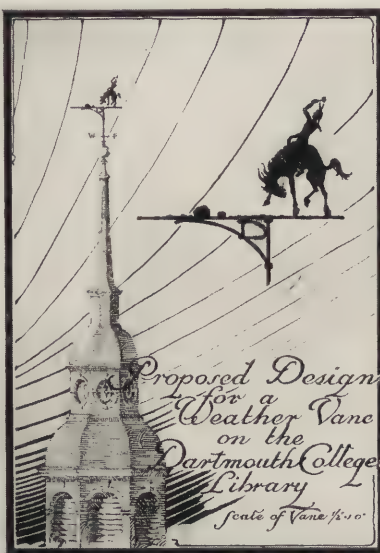 Proposed Design
for a
Weather Vane
on the
Dartmouth College
Library
Scale of Vane ½"=1'0"